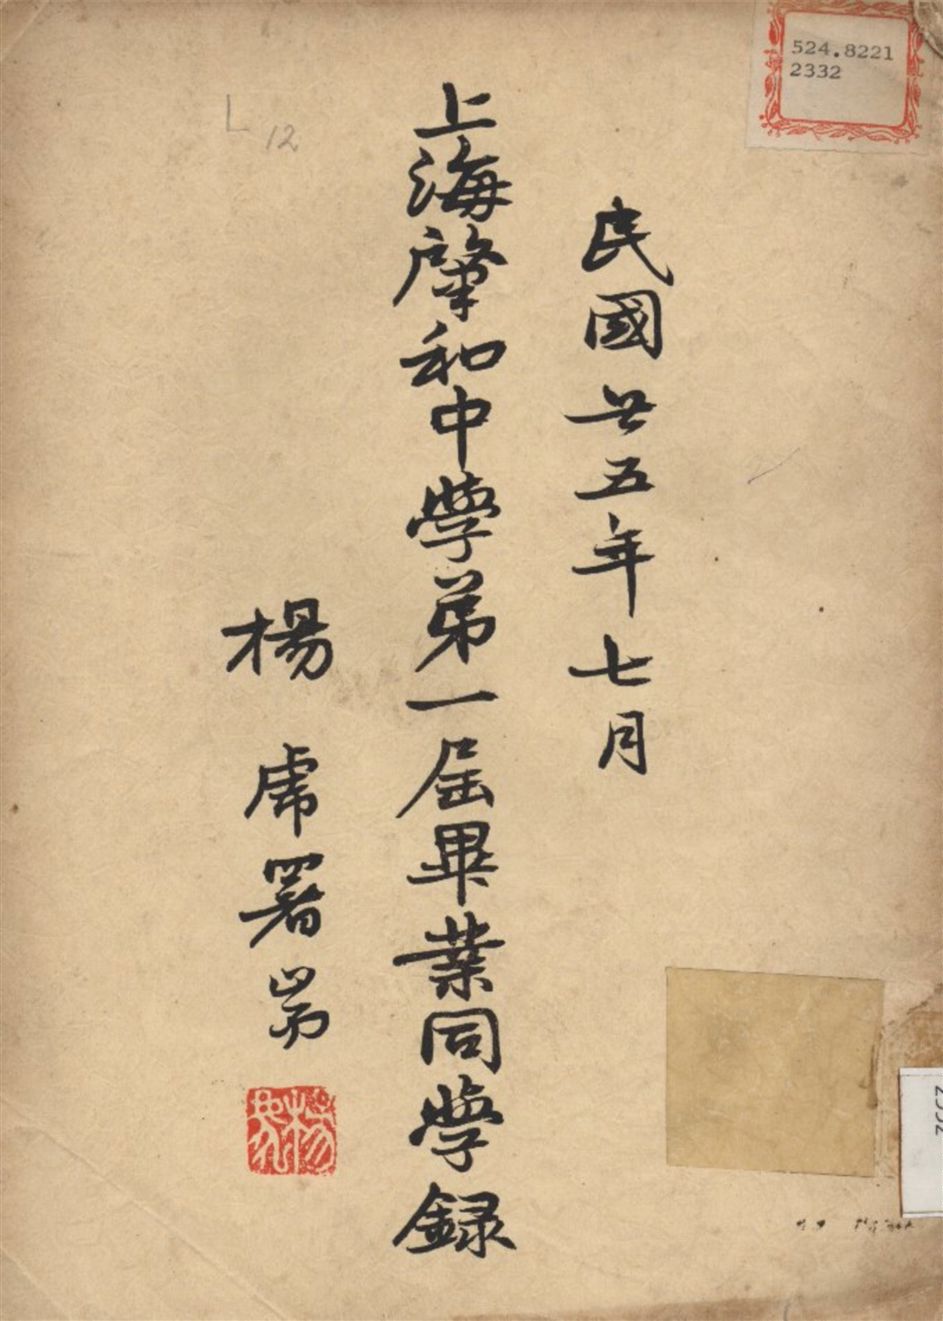 524.8221
2332
L 12
民國廿五年七月
上海肇和中學弟一屆畢業同學録
楊虎署耑
楊虎